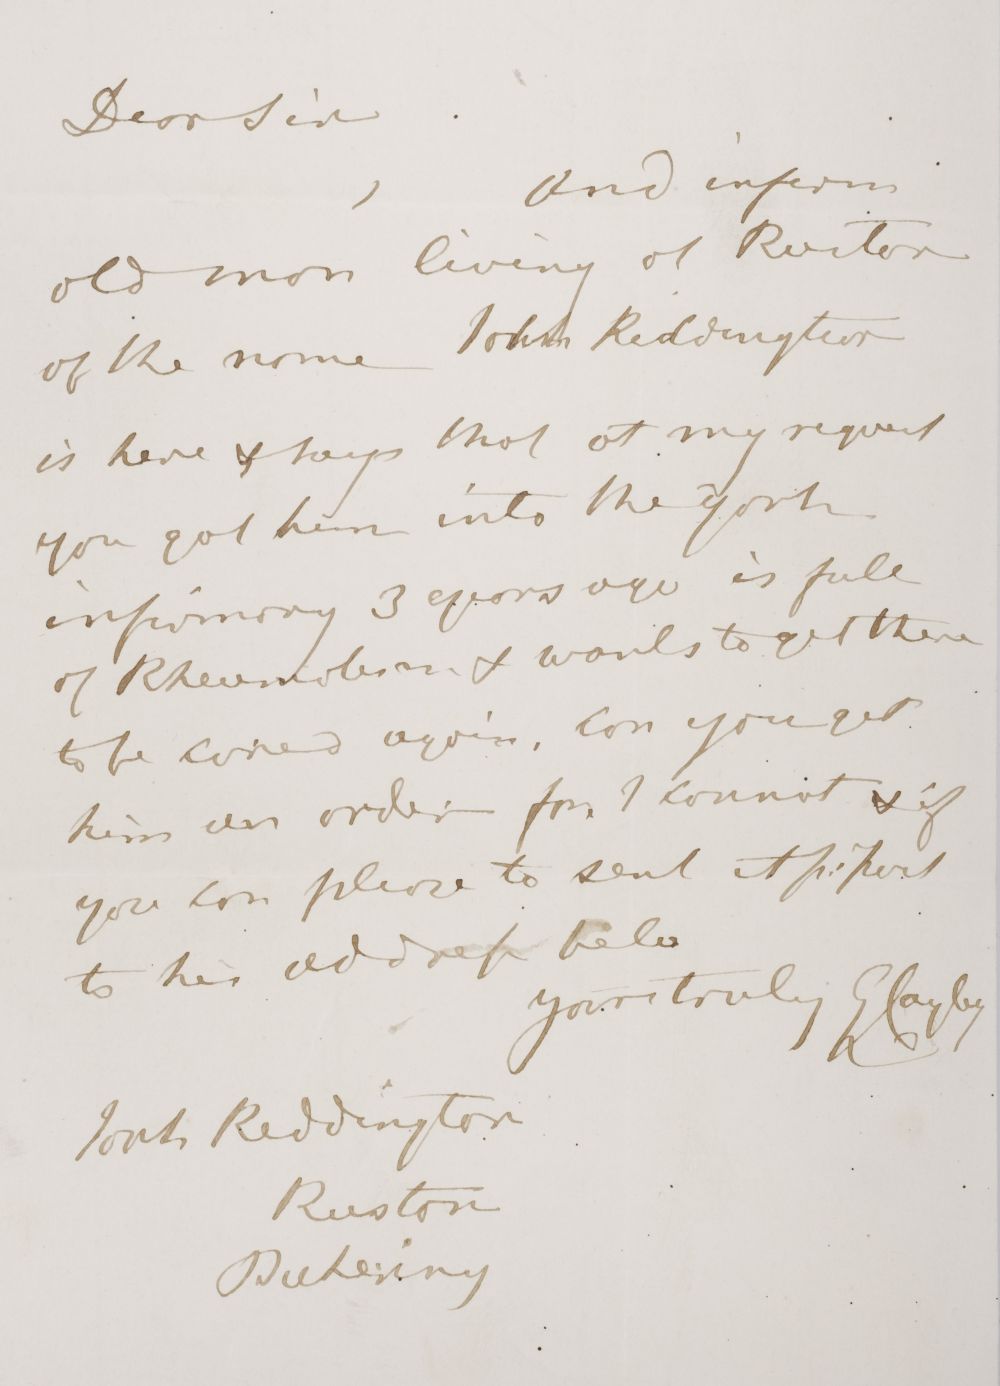 Dear Sir
and infirm
old man living at Ruston
of the name John Reddington
is here & says that at my request
you got him into the York
infirmary 3 years ago is full
of Rheumatism & wants to get there
to be cured again, can you get
him an order for I cannot & if
you can please to send it pr post
to his address below
yours truly G Cayley
John Reddington
Ruston
Pickering